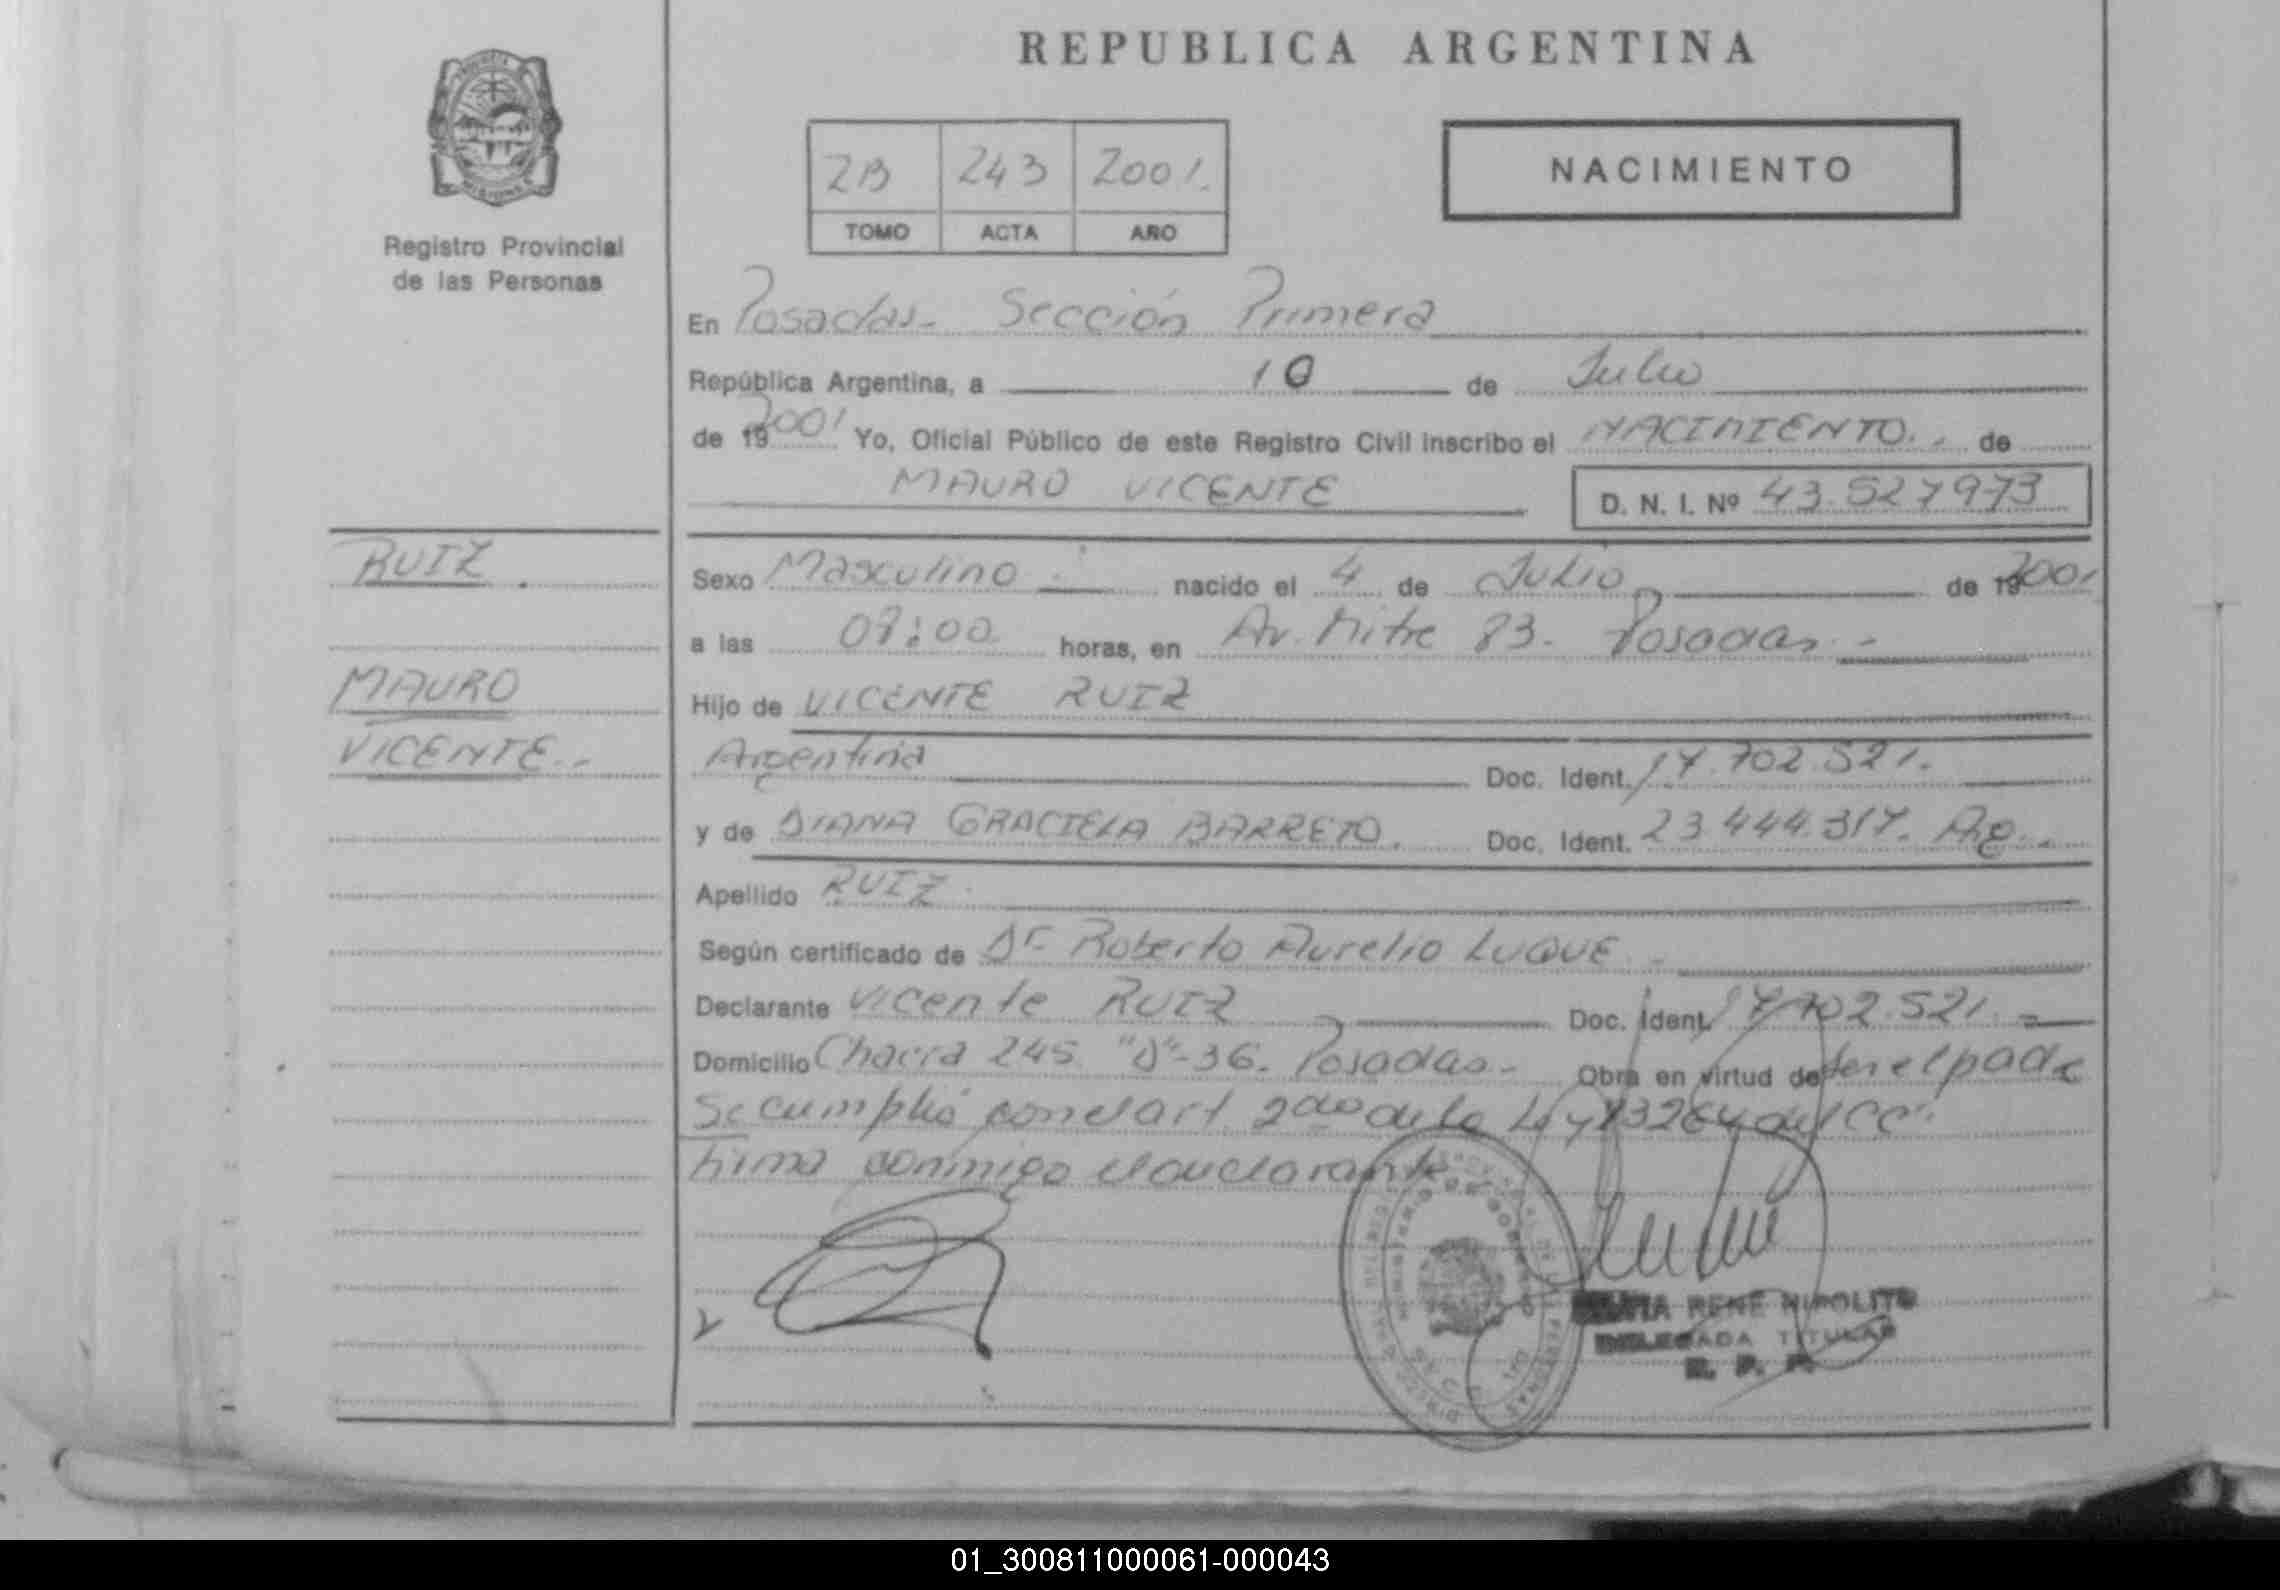 REPUBLICA ARGENTINA
Registro Provincial
de las Personas
2B 243 2001.
TOMO ACTA AÑO
NACIMIENTO
En Posadas- Sección Primera
República Argentina, a 10 de Julio
de 19 2001 Yo, Oficial Público de este Registro Civil inscribo el NACIMIENTO. de
MAURO VICENTE D. N. I. Nº 43.527973
RUIZ.
MAURO
VICENTE.-
Sexo Masculino nacido el 4 de Julio de 19 2001
a las horas, en Av. Mitre 83. Posadas.-
Hijo de VICENTE RUIZ
Argentina Doc. Ident. 17.702.521.
y de DIANA GRACIELA BARRETO. Doc. Ident. 23.444.317. Arg.
Apellido RUIZ.
Según certificado de Dr Roberto Aurelio LUQUE.-
Declarante Vicente RUIZ Doc. Ident. 17.702.521.
Domicilio Chacra 245. "D"-36. Posadas.- Obra en virtud de ser el padre
Se cumplió con el art. 2do de la Ley 13264 del CC.
Firma conmigo el declarante
RENE HIPOLITO
DELEGADA TITULAR
R. P. P.
01_300811000061-000043